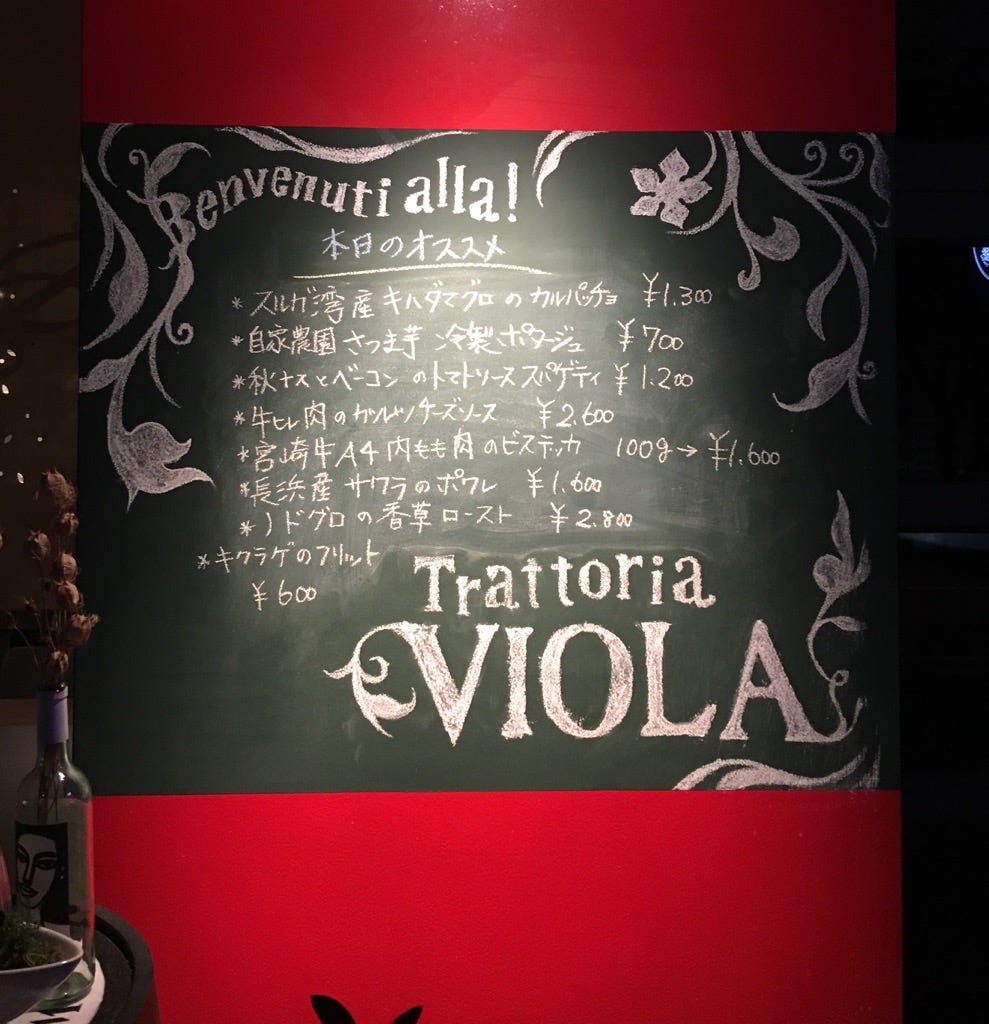 Benvenuti alla!
本日のオススメ
*スルガ湾産キハダマグロのカルパッチョ ¥1.300
*自家農園さつま芋冷製ポタージュ ¥700
*秋ナスとベーコンのトマトソーススパゲティ ¥1.200
*牛ヒレ肉の チーズソース ¥2.600
*宮崎牛A4内もも肉のビステッカ 100g→¥1.600
*長浜産サワラのポワレ ¥1.600
*ノドグロの香草ロースト ¥2.800
*キクラゲのフリット
¥600
Trattoria
VIOLA